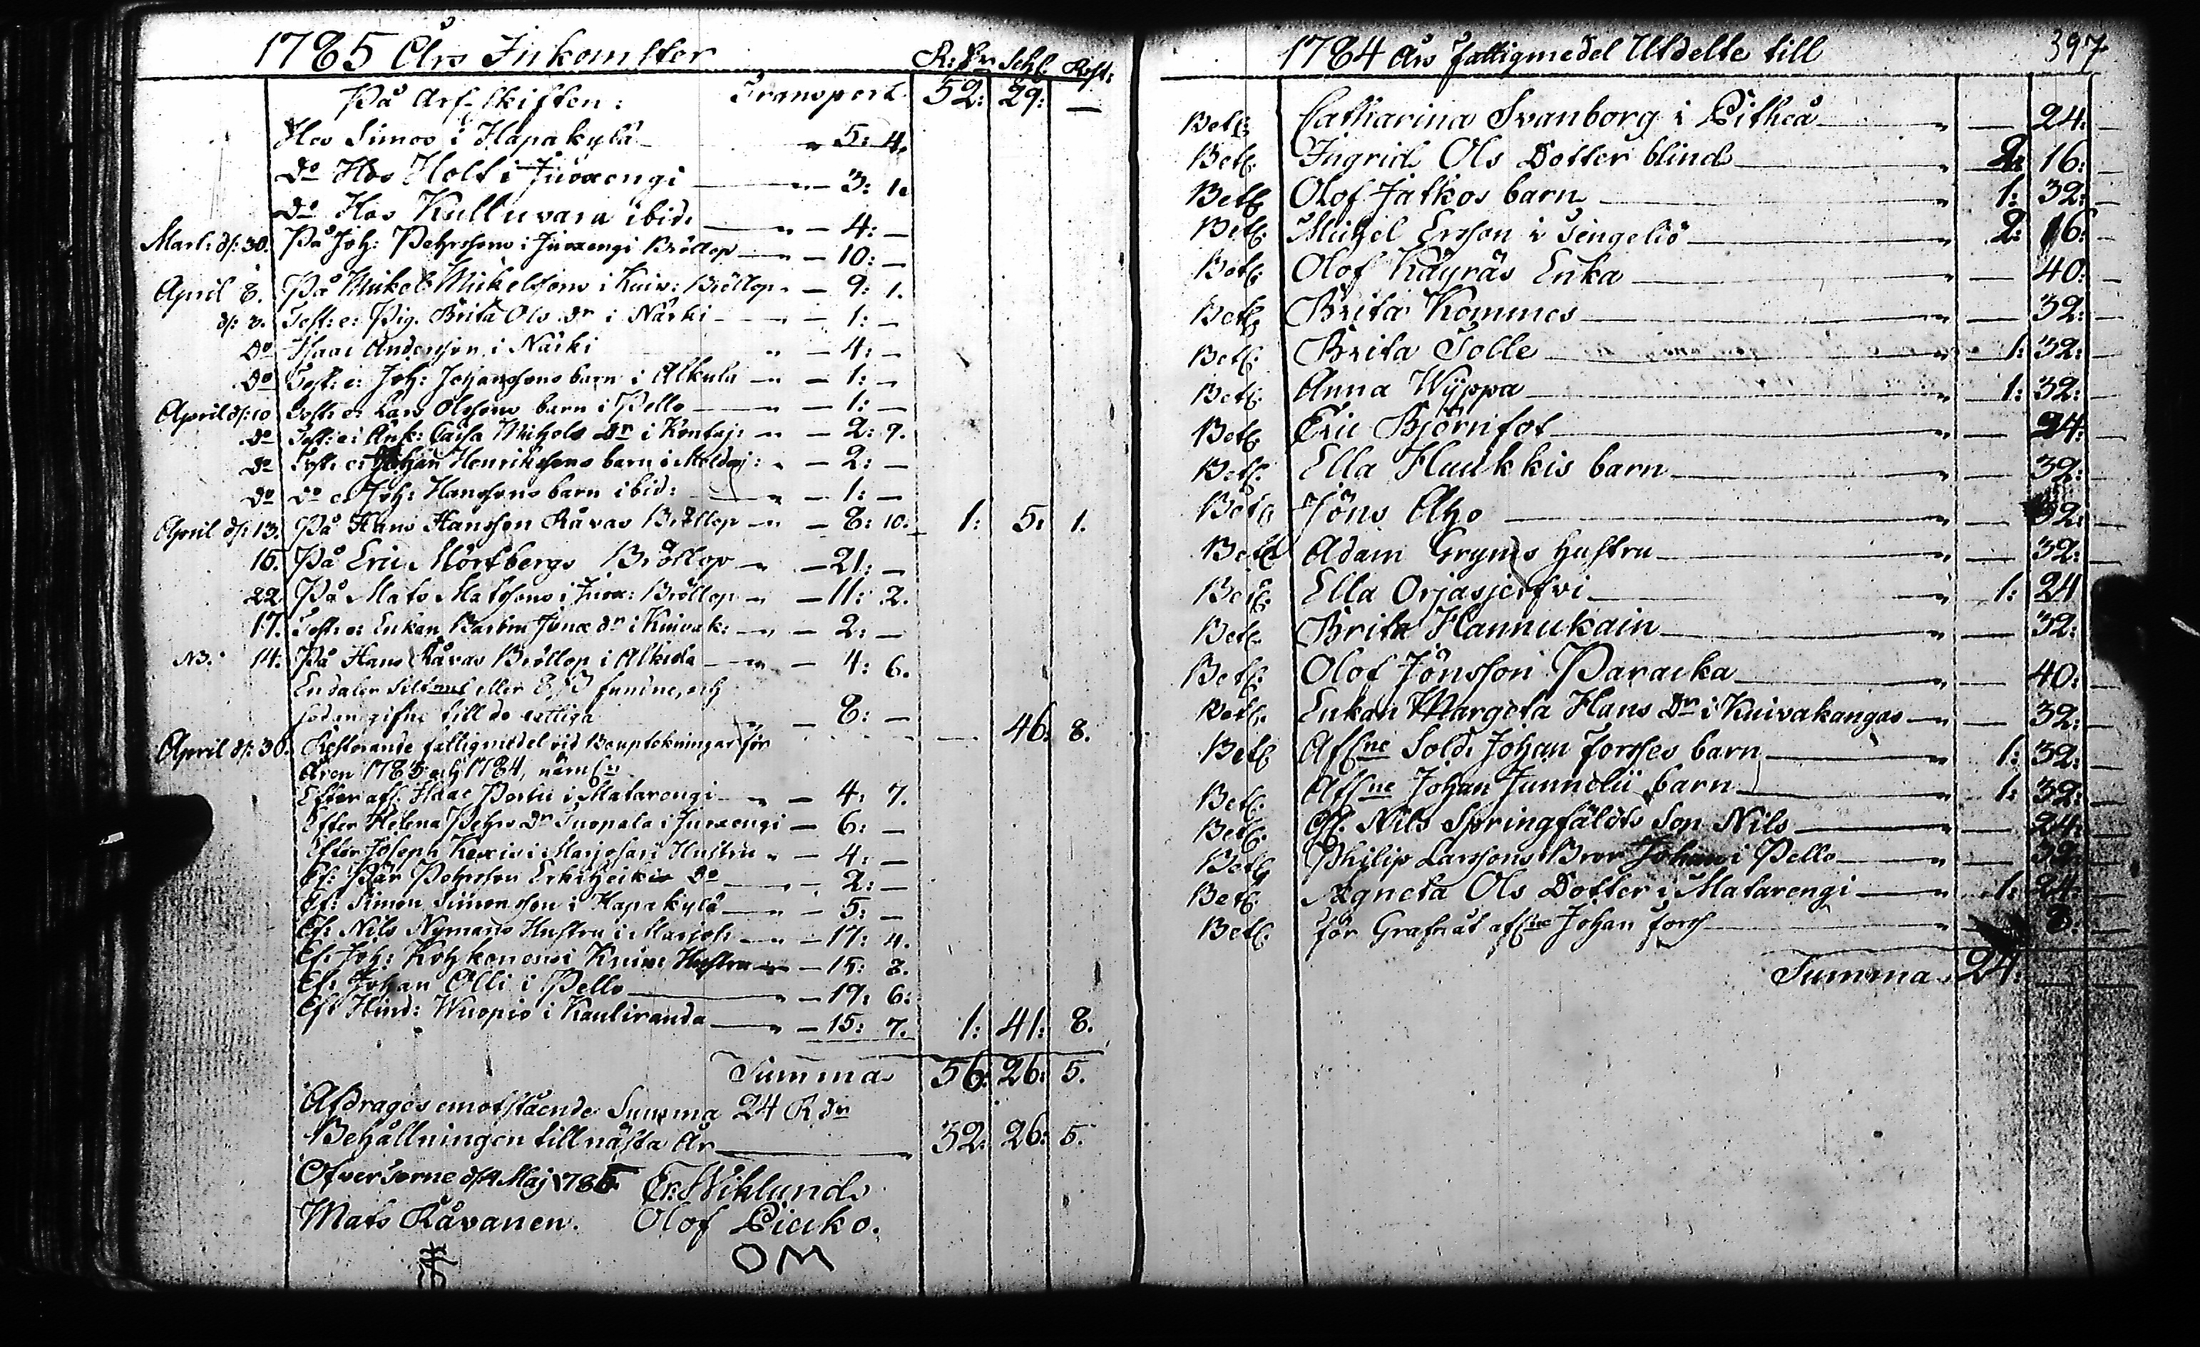 1785 Års Inkomster R:dr Schl. Rst:
På Arf-skiften: Transport 52: 29: —
Hos Simos i Hapakylä — 5: 4.
Do Hos Holt i Juoxengi — 3: 1.
Do Hos Kulluvara ibid: — 4: —
Mart: d: 30. På Joh: Pehrssons i Juoxengi Bröllop — 10: —
April 8. På Mickel Mickelssons i Kuiv: Bröllop — 9: 1.
d: 3. Test: e: Pig. Brita Ols Dr i Närki — 1: —
Do Isaac Andersson i Närki — 4: —
Do Test: e: Joh: Johanssons barn i Alkula — 1: —
April d: 10 Test: e: Lars Olssons barn i Pello — 1: —
Do Test: e: Änk: Caisa Michels Dr i Kontaj: — 2: 9.
Do Test: e: Johan Henrikssons barn i Moldoj: — 2: —
Do Do e: Joh: Hanssons barn ibid: — 1: —
April d: 13. På Hans Hansson Råvas Bröllop — 8: 10. 1: 5: 1.
15. På Eric Mörtbergs Bröllop — 21: —
22. På Mats Matssons i Juox: Bröllop — 11: 2.
17. Test: e: Enkan Barbru Jönæ dr i Kuivak: — 2: —
NB. 14. På Hans Råvas Bröllop i Alkula — 4: 6.
En daler Silfmt eller 8 ß fundne, och
sedan gifne till de fattiga — 8: — — 46: 8.
April d: 30. Resterande fattigmedel vid Bouptekningar för
Åren 1783 och 1784, näml:n
Efter afl: Isaac Portii i Matarengi — 4: 7.
Efter Helena Pehrs Dr Tuopala i Juoxengi — 6: —
Efter Joseph Kexis i Marjosari Hustru — 4: —
Ef: Pär Pehrsson Erkiheikis Do — 2: —
Ef: Simon Simonsson i Hapakylä — 5: —
Ef: Nils Nymans Hustru i Marjos: — 17: 4.
Ef: Joh: Kohkonens i Kuiv: Hustru — 15: 8.
Ef: Johan Olli i Pello — 19: 6:
Eft Hind: Wuopio i Kauliranda — 15: 7. 1: 41: 8.
Summa 56: 26: 5.
Afdrages emotstående Summa 24 R dr
Behållningen till nästa År — 32: 26: 5.
Öfver Torne d: 1 Maj 1785 Er: Wiklund.
Mats Råvanen. Olof Piuko.
OM
1784 Års Fattigmedel Utdelte till 397
Bet: Catharina Svanborg i Pitheå — 24:
Bet: Ingrid Ols Dotter blind — 2: 16:
Bet: Olof Jatkos barn — 1: 32:
Bet: Michel Ersson i Tengeliö — 2: 16:
Bet: Olof Käyräs Enka — 40:
Bet: Brita Kommes — 32:
Bet: Brita Tolle — 1: 32:
Bet: Anna Wyppa — 1: 32:
Bet: Eric Björnfot — 24:
Bet: Ella Haukkis barn — 32:
Bet: Jöns Aho — 32:
Bet: Adam Gryms hustru — 32:
Bet: Ella Orjasjerfvi — 1: 24
Bet: Brita Hannukain — 32:
Bet: Olof Jönsson Paracka — 40:
Bet: Enkan Margeta Hans Dr i Kuivakangas — 32:
Bet: Aflne Sold: Johan Forsses barn — 1: 32:
Bet: Aflne Johan Junnelii barn — 1: 32:
Bet: Afl: Nils Springfäldts Son Nils — 24:
Bet: Philip Larssons Bror Johan i Pello — 32:
Bet: Agneta Ols Dotter i Matarengi — 1: 24:
Bet: för Graf åt aflne Johan Forss — 8:
Summa 24: